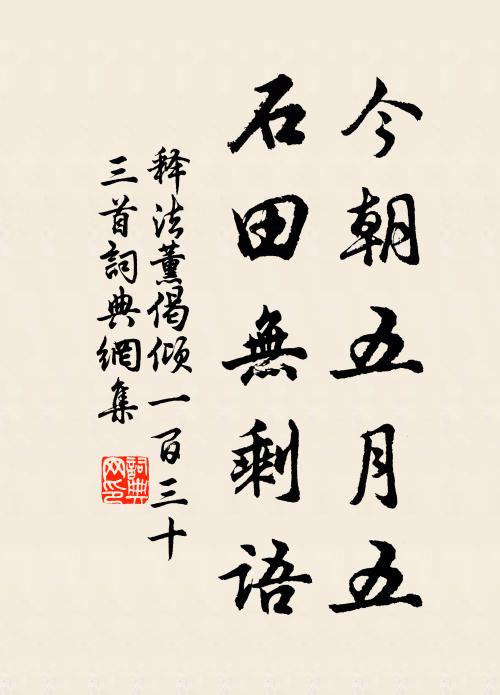 今朝五月五
石田無剩語
释法薰偈傾一百三十
三首詞典網集
詞典网印